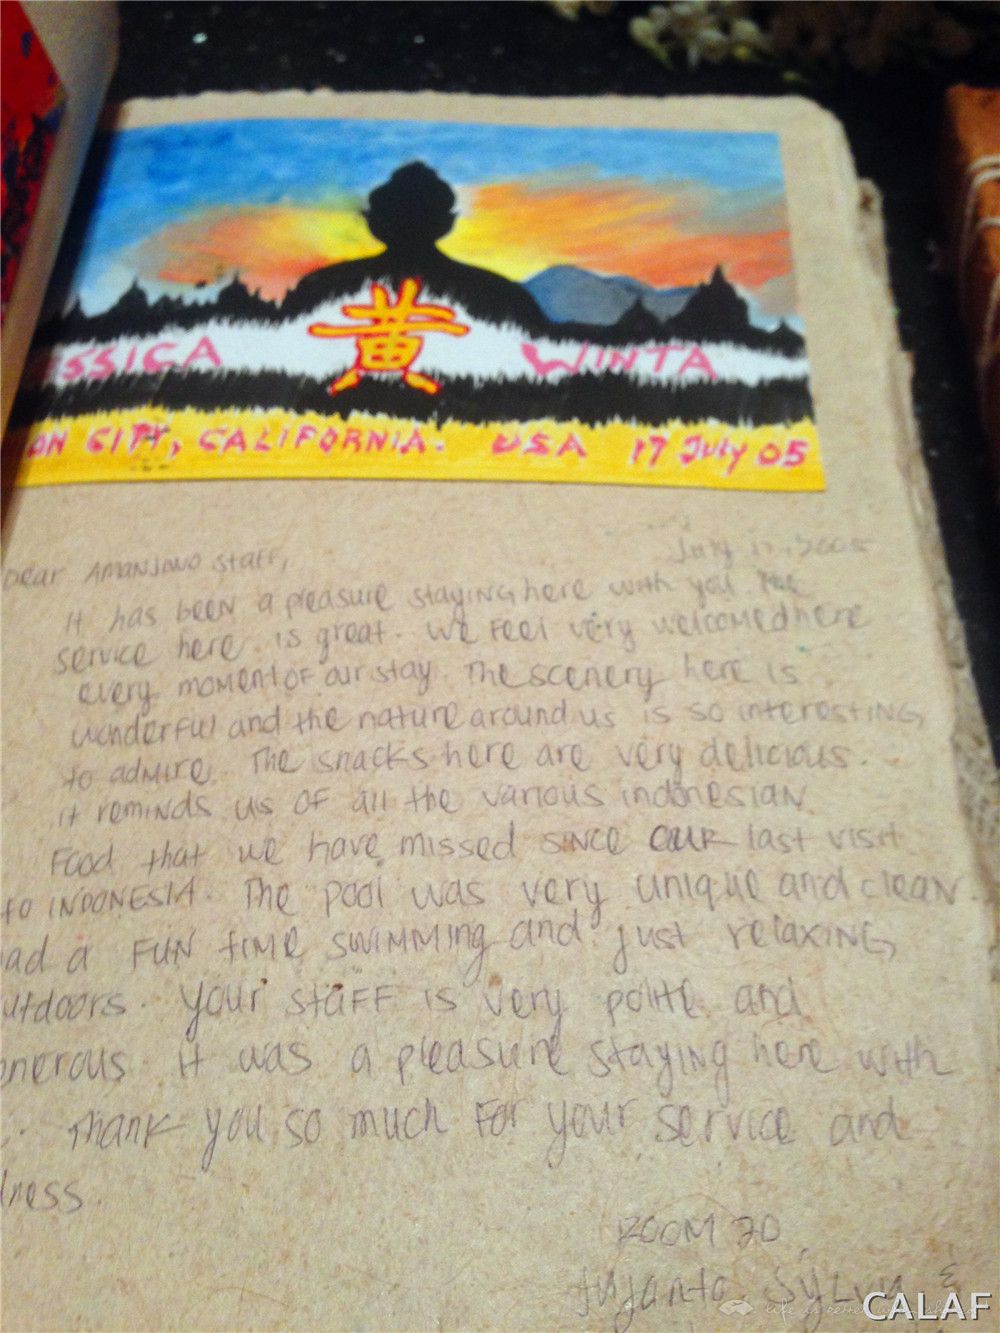 ESSICA 黄 WINTA
ON CITY, CALIFORNIA. USA 17 July 05
July 17, 2005
Dear AMANJIWO Staff,
It has been a pleasure staying here with you. The
service here is great. We feel very welcomed here
every moment of our stay. The scenery here is
wonderful and the nature around us is so interesting
to admire. The snacks here are very delicious.
it reminds us of all the various indonesian
Food that we have missed since our last visit
to INDONESIA. The pool was very unique and clean.
ad a FUN time swimming and just relaxing
utdoors. Your staff is very polite and
enerous. it was a pleasure staying here with
. Thank you so much for your service and
dness.
ROOM 20
Sylvia &
CALAF